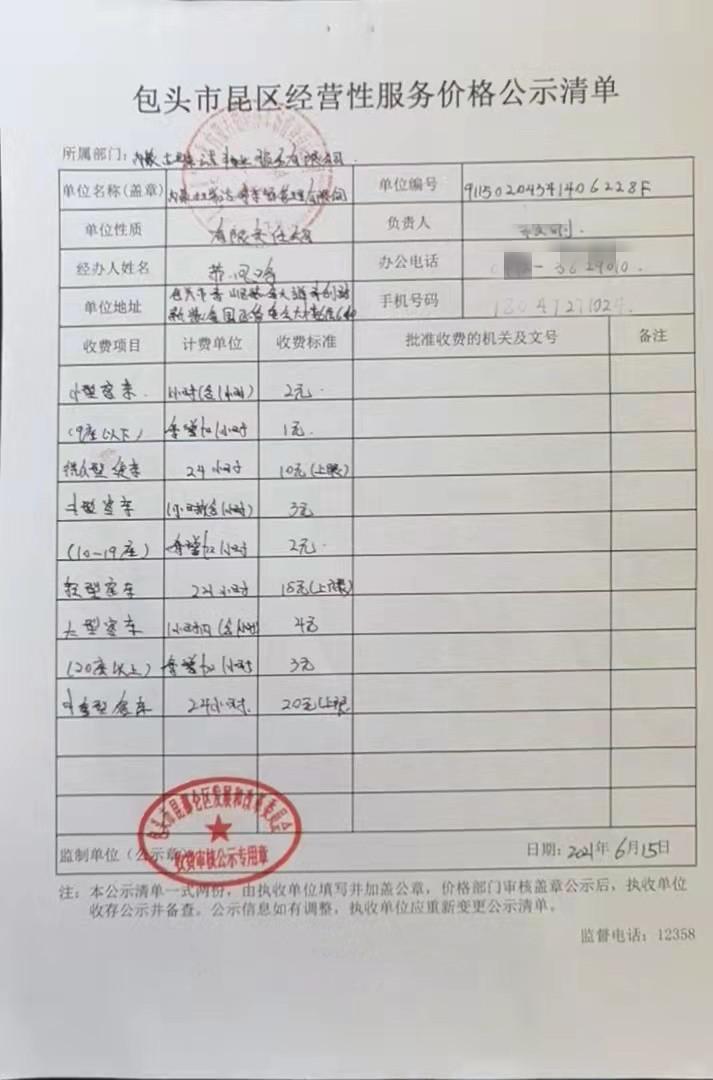 包头市昆区经营性服务价格公示清单
所属部门：
单位名称(盖章) 单位编号 91150204341406228F
单位性质 有限责任公司 负责人
经办人姓名 办公电话
单位地址 手机号码
收费项目 计费单位 收费标准 批准收费的机关及文号 备注
小型客车 1小时(含1小时) 2元
(9座以下) 每增加1小时 1元
24小时 10元(上限)
中型客车 1小时内(含1小时) 3元
(10-19座) 每增加1小时 2元
轻型客车 24小时 15元(上限)
大型客车 1小时内(含1小时) 4元
(20座以上) 每增加1小时 3元
24小时 20元(上限)
包头市昆都仑区发展和改革委员会
收费审核公示专用章
监制单位（公示章） 日期：2021年6月15日
注：本公示清单一式两份，由执收单位填写并加盖公章，价格部门审核盖章公示后，执收单位
收存公示并备查。公示信息如有调整，执收单位应重新变更公示清单。
监督电话：12358